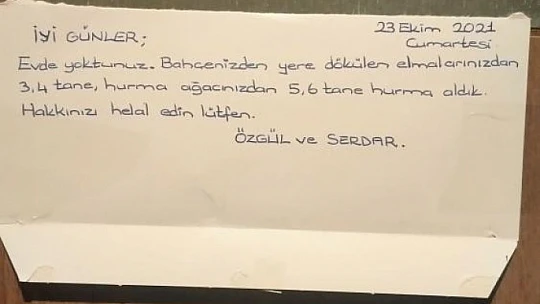 23 Ekim 2021
İYİ GÜNLER;
Cumartesi
Evde yoktunuz. Bahcenizden yere dökülen elmalarınızdan
3,4 tane, hurma ağacınızdan 5,6 tane hurma aldık.
Hakkınızı helal edin lütfen.
ÖZGÜL ve SERDAR.